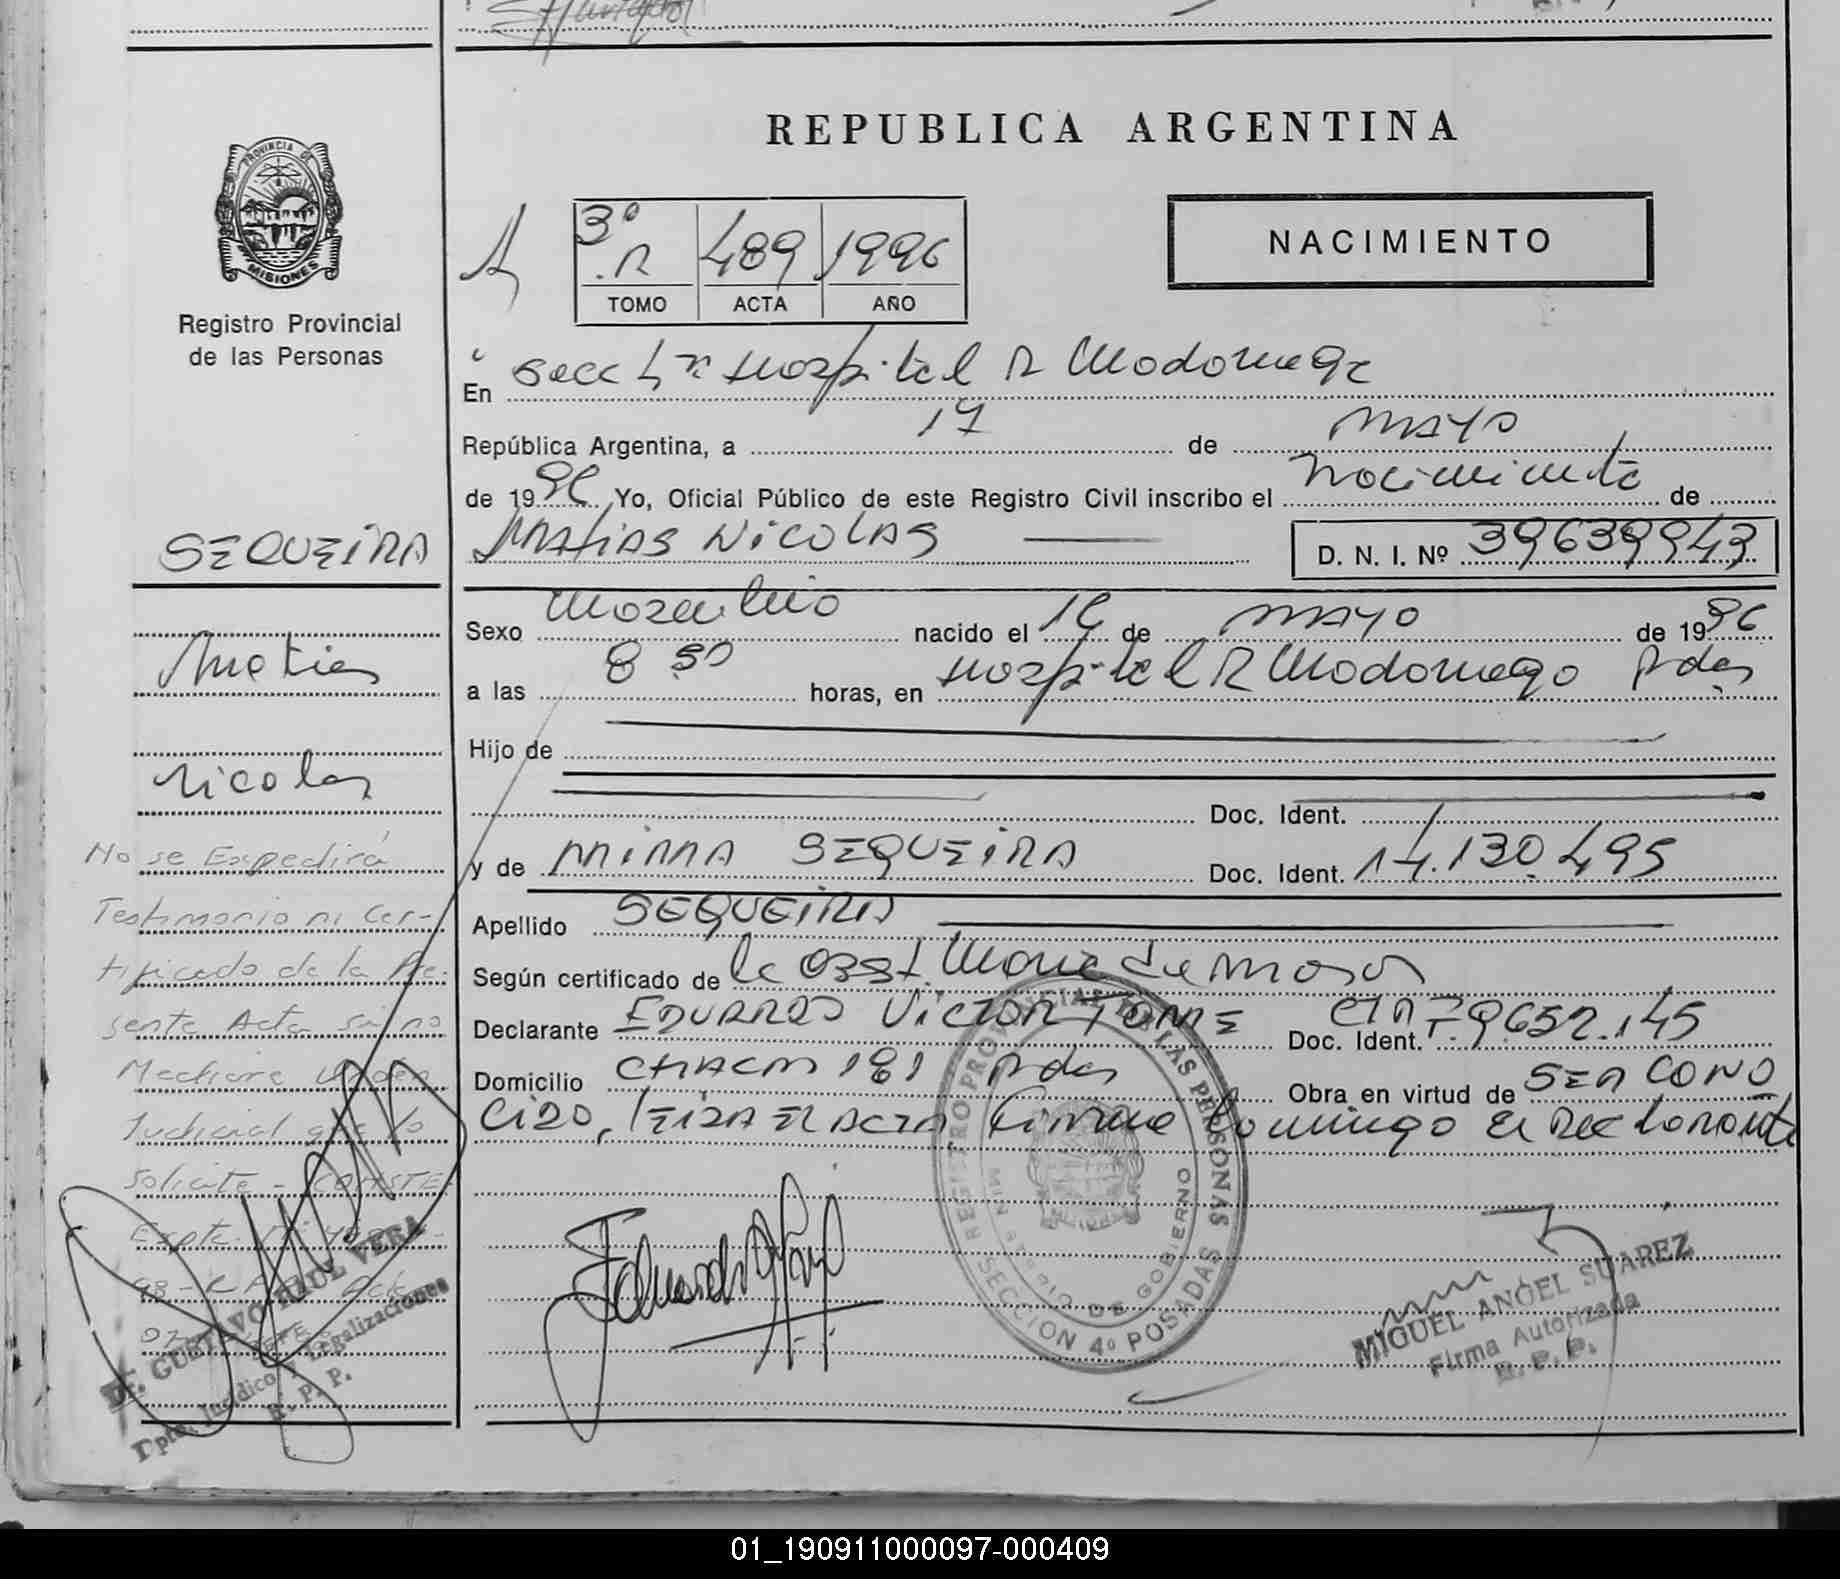 REPUBLICA ARGENTINA
PROVINCIA DE
MISIONES
Registro Provincial
de las Personas
3º
R 489 1996
TOMO ACTA AÑO
NACIMIENTO
En Secc 4ª Hospital R Madariaga
República Argentina, a 17 de MAYO
de 1996 Yo, Oficial Público de este Registro Civil inscribo el Nacimiento de
SEQUEIRA
MATIAS NICOLAS D. N. I. Nº 39639943
Sexo Masculino nacido el 16 de MAYO de 1996
Matias
a las 8 50 horas, en Hospital R Madariaga Pdas
Hijo de
Nicolas
Doc. Ident.
y de MIRNA SEQUEIRA Doc. Ident. 14.130.495
Apellido SEQUEIRA
Según certificado de la Obst. Maria
Declarante EDUARDO VICTOR Doc. Ident. 9.652.145
Domicilio 181 Pdas Obra en virtud de SER CONO
CIDO, LEIDA EL ACTA Firma Conmigo El Declarante
No se Expedirá
Testimonio ni Cer-
tificado de la Pre-
sente Acta si no
Mediare Orden
Judicial que lo
solicite - CONSTE
Expte.
Dr. GUSTAVO RAUL VERA
JEFE
Dpto. Jurídico y Legalizaciones
R. P. P.
REGISTRO PROVINCIAL DE LAS PERSONAS
DE GOBIERNO
SECCION 4º POSADAS
MIGUEL ANGEL SUAREZ
Firma Autorizada
R. P. P.
01_190911000097-000409